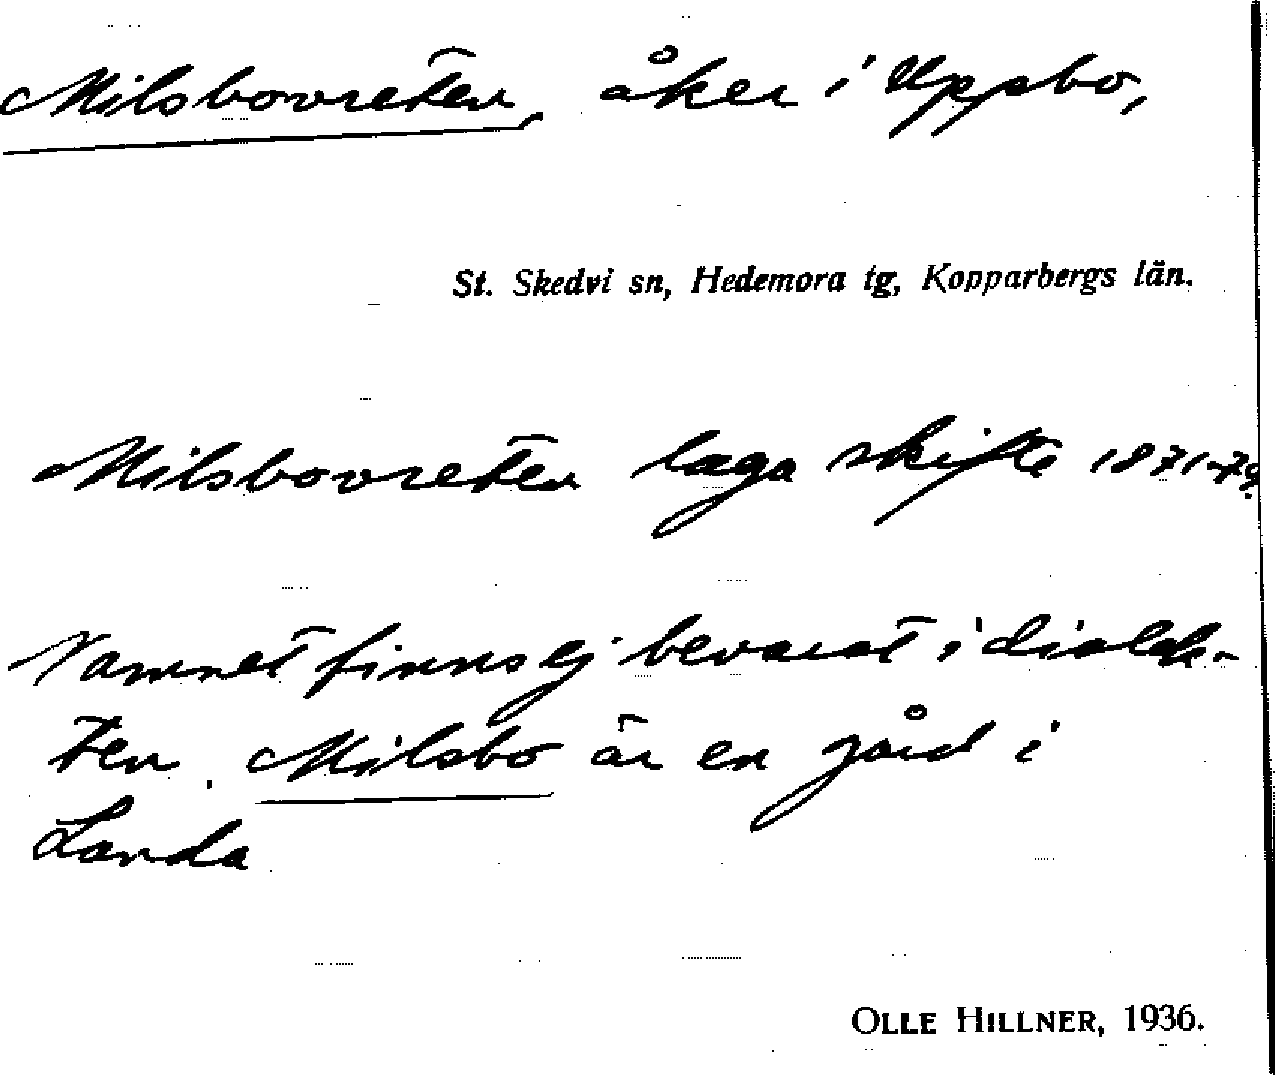 Milsbovreten, åker i Uppsbo,
St. Skedvi sn, Hedemora tg, Kopparbergs län.
Milsbovreten laga skifte 1871-79.
Namnet finns ej bevarat i dialek-
ten. Milsbo är en gård i
Landa
OLLE HILLNER, 1936.